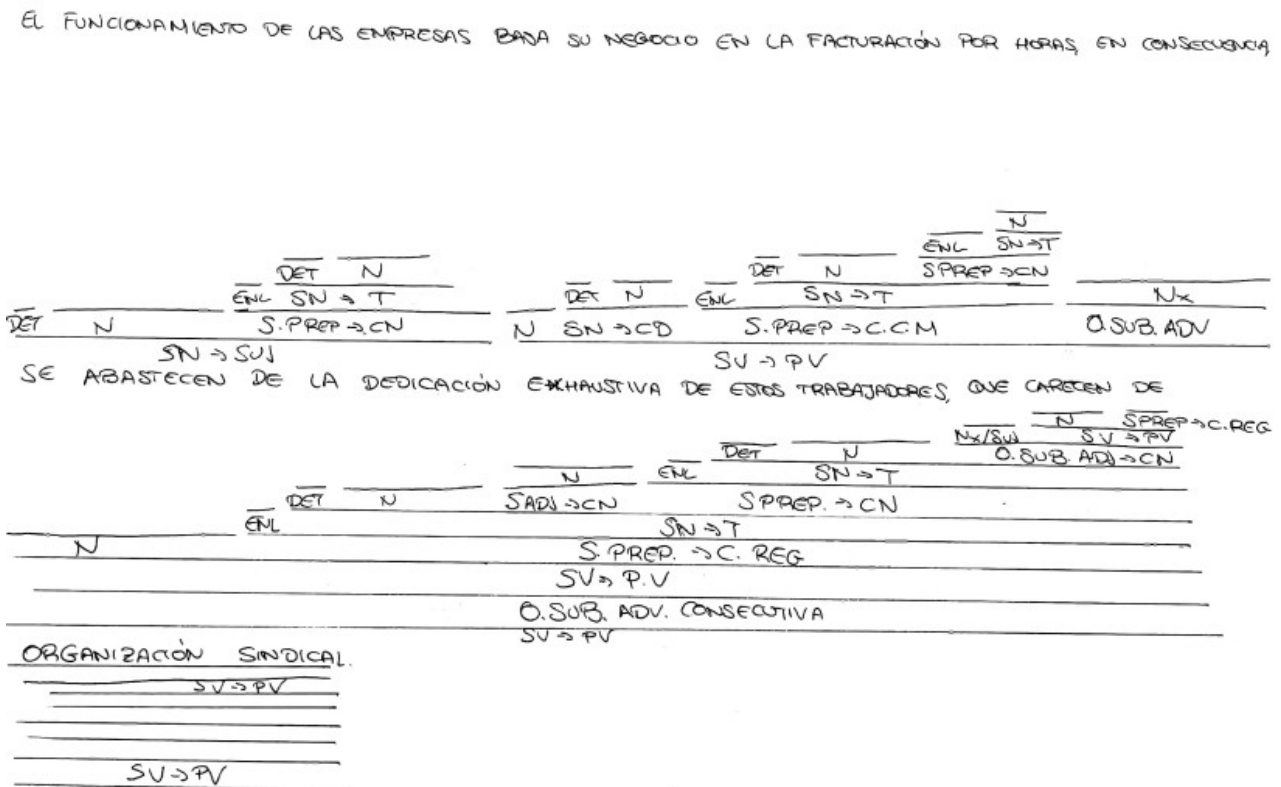 EL FUNCIONAMIENTO DE LAS EMPRESAS BASA SU NEGOCIO EN LA FACTURACIÓN POR HORAS, EN CONSECUENCIA
N
ENL SN→T
DET N DET N SPREP→CN
ENL SN→T DET N ENL SN→T Nx
DET N S.PREP→CN N SN→CD S.PREP→C.CM O.SUB.ADV
SN→SUJ SV→PV
SE ABASTECEN DE LA DEDICACIÓN EXHAUSTIVA DE ESTOS TRABAJADORES, QUE CARECEN DE
N SPREP→C.REG
Nx/SUJ SV→PV
DET N O.SUB.ADJ→CN
N ENL SN→T
DET N SADJ→CN SPREP.→CN
ENL SN→T
N S.PREP.→C.REG
SV→P.V
O.SUB.ADV.CONSECUTIVA
SV→PV
ORGANIZACIÓN SINDICAL.
SV→PV
SV→PV